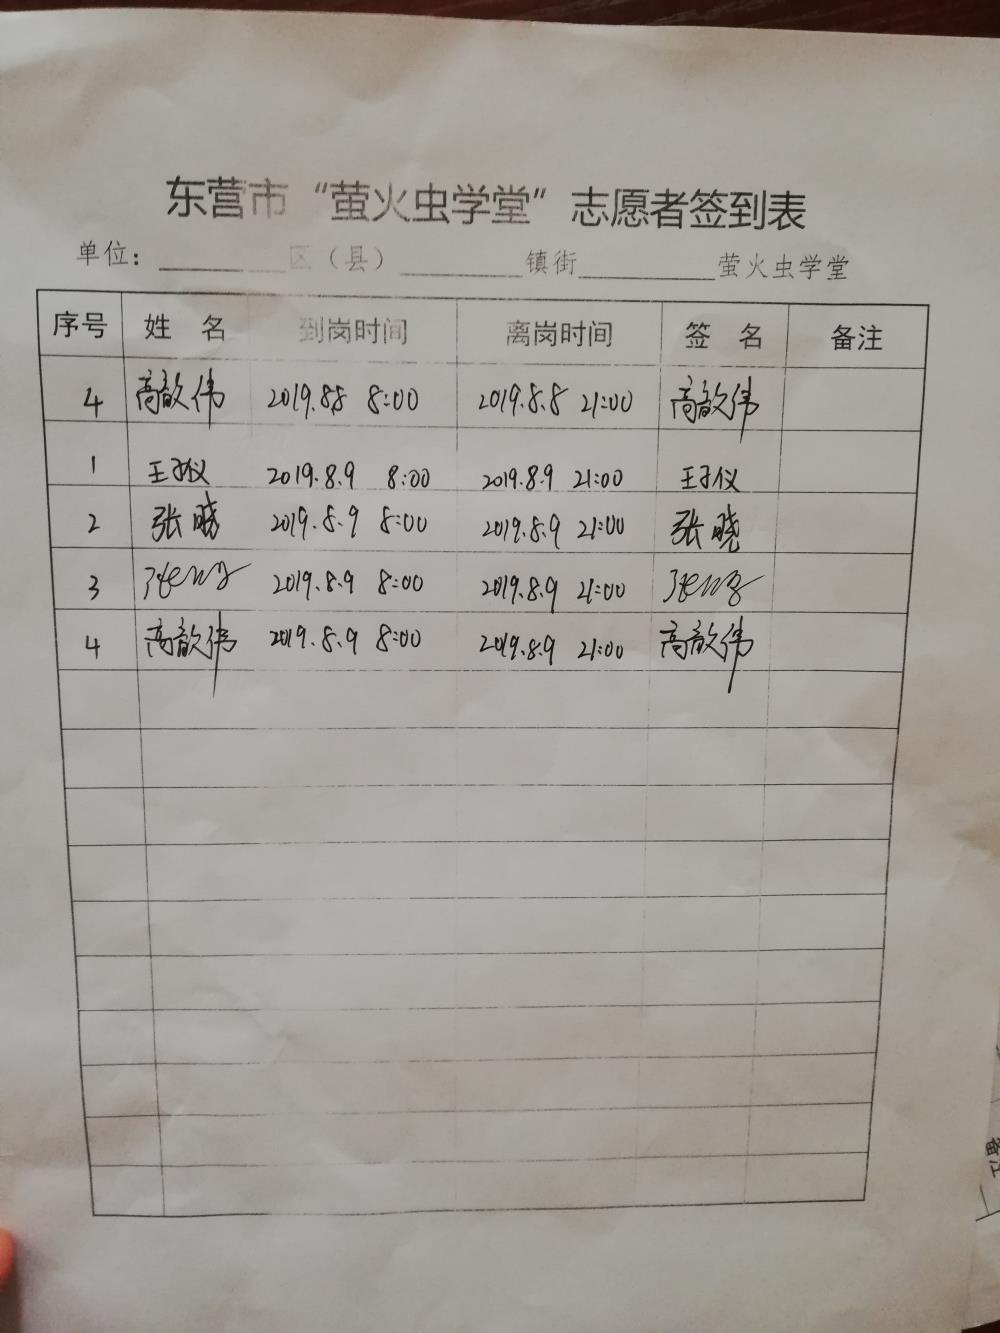 东营市“萤火虫学堂”志愿者签到表
单位：________区（县）________镇街________萤火虫学堂
序号 姓 名 到岗时间 离岗时间 签 名 备注
4 高歆伟 2019.8.8 8:00 2019.8.8 21:00 高歆伟
1 王子仪 2019.8.9 8:00 2019.8.9 21:00 王子仪
2 张晓 2019.8.9 8:00 2019.8.9 21:00 张晓
3 2019.8.9 8:00 2019.8.9 21:00
4 高歆伟 2019.8.9 8:00 2019.8.9 21:00 高歆伟